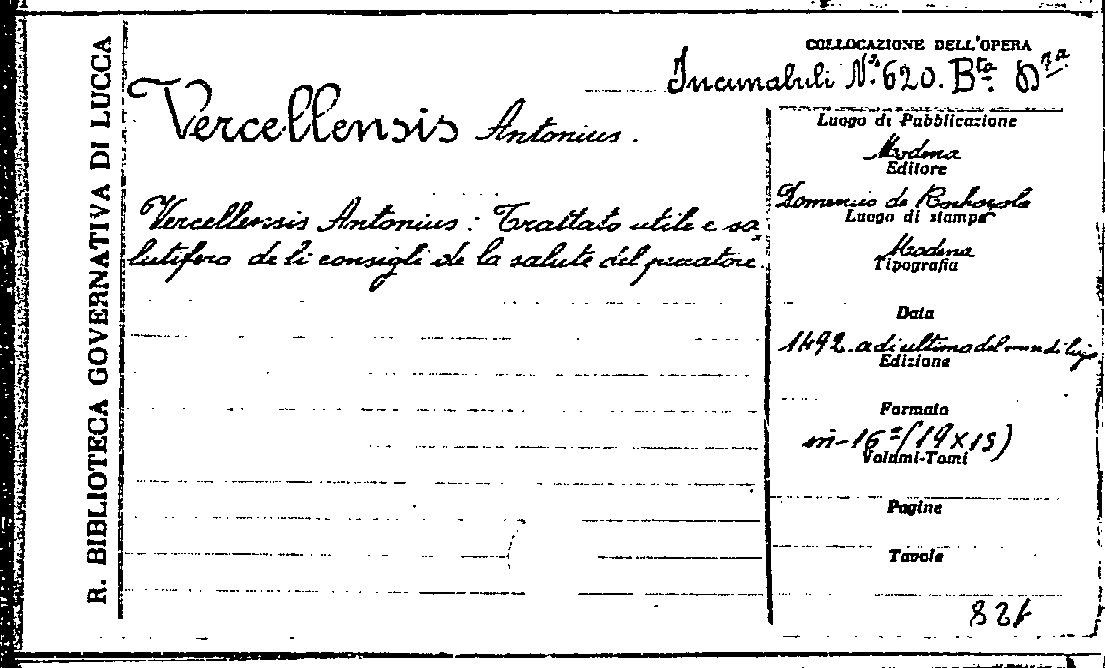 R. BIBLIOTECA GOVERNATIVA DI LUCCA
COLLOCAZIONE DELL'OPERA
Incunabuli N.º 620. Bta
Vercellensis Antonius.
Vercellensis Antonius: Trattato utile e sa
lutifero de li consigli de la salute del peccatore.
Luogo di Pubblicazione
Modena
Editore
Domenico de
Luogo di stampa
Modena
Tipografia
Data
1492. adi ultimo del
Edizione
Formato
in-16º (19x15)
Volumi-Tomi
Pagine
Tavole